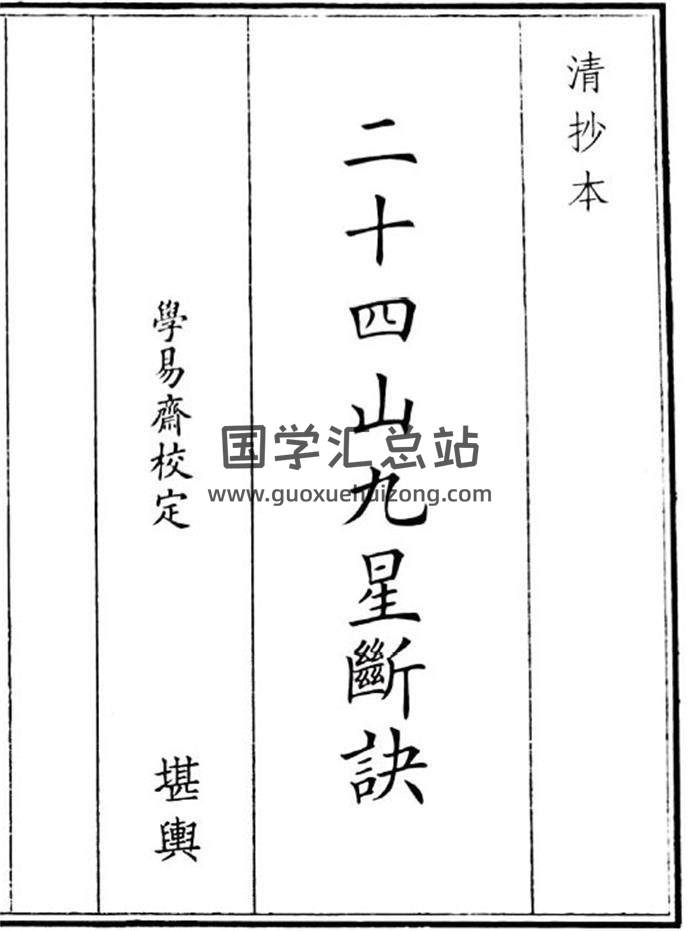 清抄本
二十四山九星斷訣
學易齋校定
堪輿
国学汇总站
www.guoxuehuizong.com